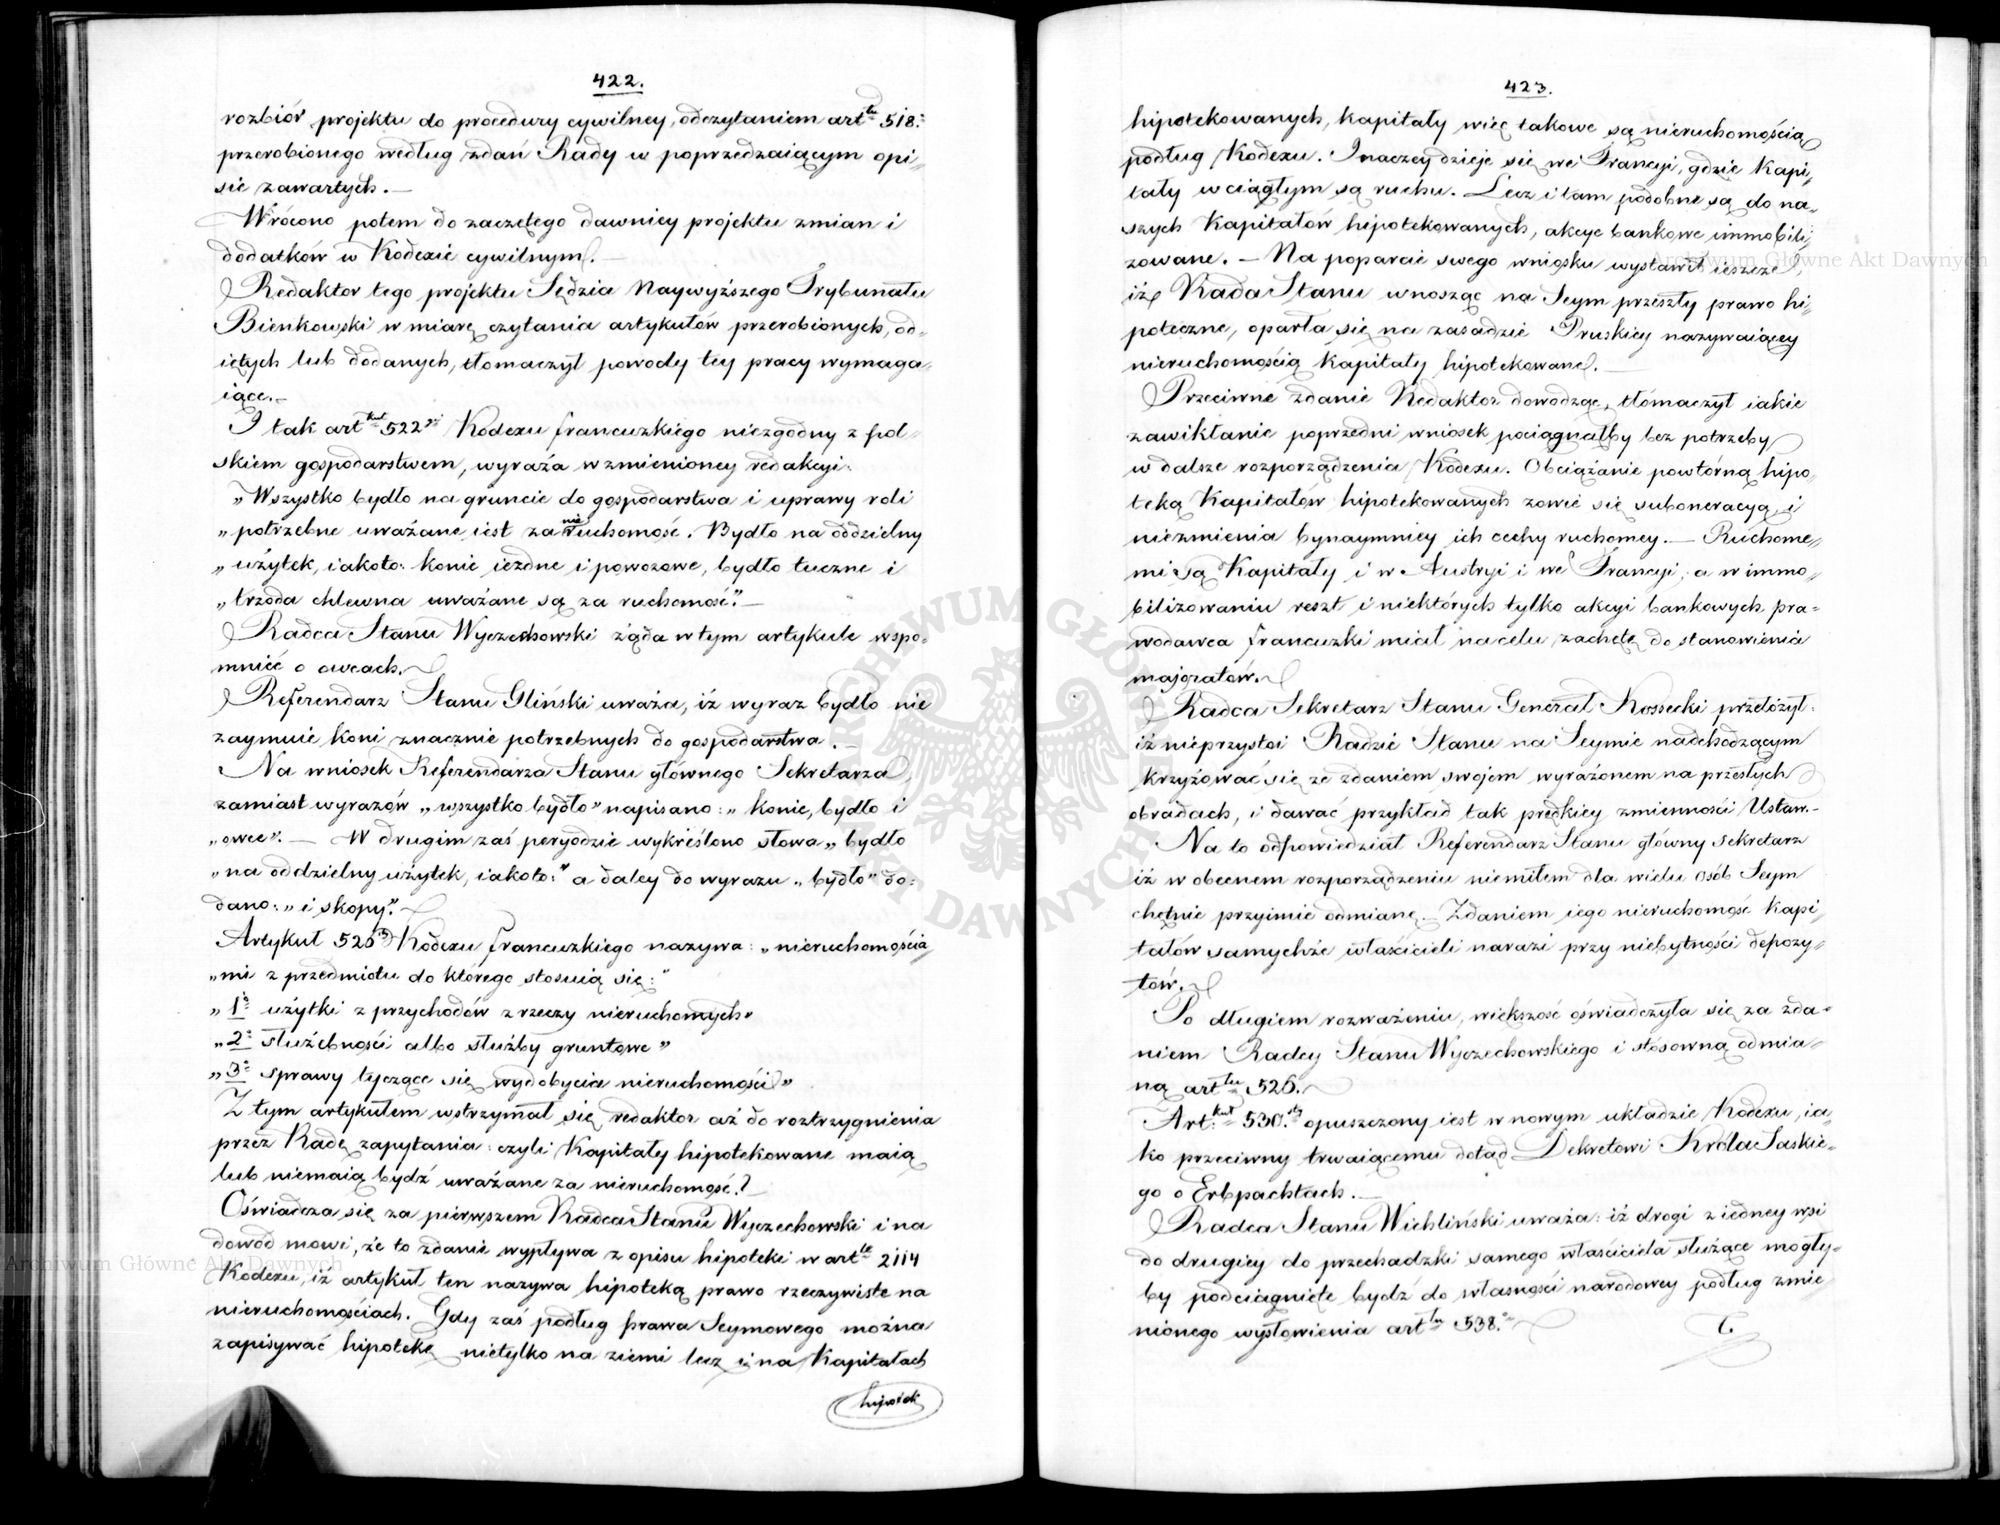 422.
rozbiór projektu do procedury cywilney, odczytaniem art<sup>łu</sup> 518.
przerobionego według zdań Rady w poprzedzaiącym opi-
sie zawartych. —
Wrócono potem do zaczętego dawniey projektu zmian i
dodatków w Kodexie cywilnym. —
Redaktor tego projektu Sędzia Naywyższego Trybunału
Bieńkowski w miarę czytania artykułów przerobionych, od-
iętych lub dodanych, tłomaczył powody tey pracy wymaga-
iące. —
I tak art<sup>kuł</sup> 522<sup>gi</sup> Kodexu francuzkiego niezgodny z pol-
skiem gospodarstwem, wyraża w zmienioney redakcyi:
„Wszystko bydło na gruncie do gospodarstwa i uprawy roli
„potrzebne uważane iest za nieruchomość. Bydło na oddzielny
„użytek, iakoto: konie iezdne i powozowe, bydło tuczne i
„trzoda chlewna uważane są za ruchomość." —
Radca Stanu Wyczechowski żąda w tym artykule wspo-
mnieć o owcach.
Referendarz Stanu Gliński uważa, iż wyraz bydło nie
zaymuie koni znacznie potrzebnych do gospodarstwa. —
Na wniosek Referendarza Stanu głównego Sekretarza,
zamiast wyrazów „wszystko bydło" napisano: „konie, bydło i
„owce". — W drugim zaś peryodzie wykreślono słowa „bydło
„na oddzielny użytek, iakoto:" a daley do wyrazu „bydło" do-
dano: „i skopy".
Artykuł 526<sup>ty</sup> Kodexu francuzkiego nazywa: „nieruchomościa-
„mi z przedmiotu do którego stosuią się:"
„1<sup>o</sup> użytki z przychodów z rzeczy nieruchomych"
„2<sup>o</sup> służebności albo służby gruntowe"
„3<sup>o</sup> sprawy tyczące się wydobycia nieruchomości"
Z tym artykułem wstrzymał się redaktor aż do roztrzygnienia
przez Radę zapytania: czyli Kapitały hipotekowane maią
lub niemaią bydź uważane za nieruchomość? —
Oświadcza się za pierwszem Radca Stanu Wyczechowski i na
dowód mówi, że to zdanie wypływa z opisu hipoteki w art<sup>le</sup> 2114
Kodexu, iż artykuł ten nazywa hipoteką prawo rzeczywiste na
nieruchomościach. Gdy zaś podług prawa Seymowego można
zapisywać hipotekę nietylko na ziemi lecz i na Kapitałach
hipotek
423.
hipotekowanych, kapitały więc takowe są nieruchomością
podług Kodexu. Inaczey dzieje się we Francyi, gdzie Kapi-
tały w ciągłym są ruchu. Lecz i tam podobne są do na-
szych Kapitałów hipotekowanych, akcye bankowe immobili-
zowane. — Na poparcie swego wniosku wystawił ieszcze,
iż Rada Stanu wnosząc na Seym przeszły prawo hi-
poteczne, oparła się na zasadzie Pruskiey nazywaiącey
nieruchomością Kapitały hipotekowane. —
Przeciwne zdanie Redaktor dowodząc, tłómaczył iakie
zawikłanie poprzedni wniosek pociągnąłby bez potrzeby
w dalsze rozporządzenia Kodexu. Obciążanie powtórną hipo-
teką Kapitałów hipotekowanych zowie się suboneracyą, i
niezmienia bynaymniey ich cechy ruchomey. — Ruchome-
mi są Kapitały i w Austryi i we Francyi, a w immo-
bilizowaniu reszt i niektórych tylko akcyi bankowych pra-
wodawca francuzki miał na celu zachętę do stanowienia
majoratów.
Radca Sekretarz Stanu Generał Kossecki przełożył:
iż nieprzystoi Radzie Stanu na Seymie nadchodzącym
krzyżować się ze zdaniem swojem wyrażonem na przeszłych
obradach, i dawać przykład tak prędkiey zmienności Ustaw. —
Na to odpowiedział Referendarz Stanu główny Sekretarz
iż w obecnem rozporządzeniu niemiłem dla wielu osób Seym
chętnie przyimie odmianę. Zdaniem iego nieruchomość Kapi-
tałów samychże właścicieli narazi przy niebytności depozy-
tów.
Po długiem rozważeniu, większość oświadczyła się za zda-
niem Radcy Stanu Wyczechowskiego i stosowną odmia-
ną art<sup>łu</sup> 526.
Art.<sup>kuł</sup> 530.<sup>sty</sup> opuszczony iest w nowym układzie Kodexu, ia-
ko przeciwny trwaiącemu dotąd Dekretowi Króla Saskie-
go o Erbpachtach. —
Radca Stanu Wichliński uważa: iż drogi z iedney wsi
do drugiey do przechadzki samego właściciela służące mogły-
by podciągnięte bydź do własności narodowey podług zmie-
nionego wysłowienia art<sup>łu</sup> 538.
Archiwum Główne Akt Dawnych
ARCHIWUM GŁÓWNE AKT DAWNYCH
Archiwum Główne Akt Dawnych